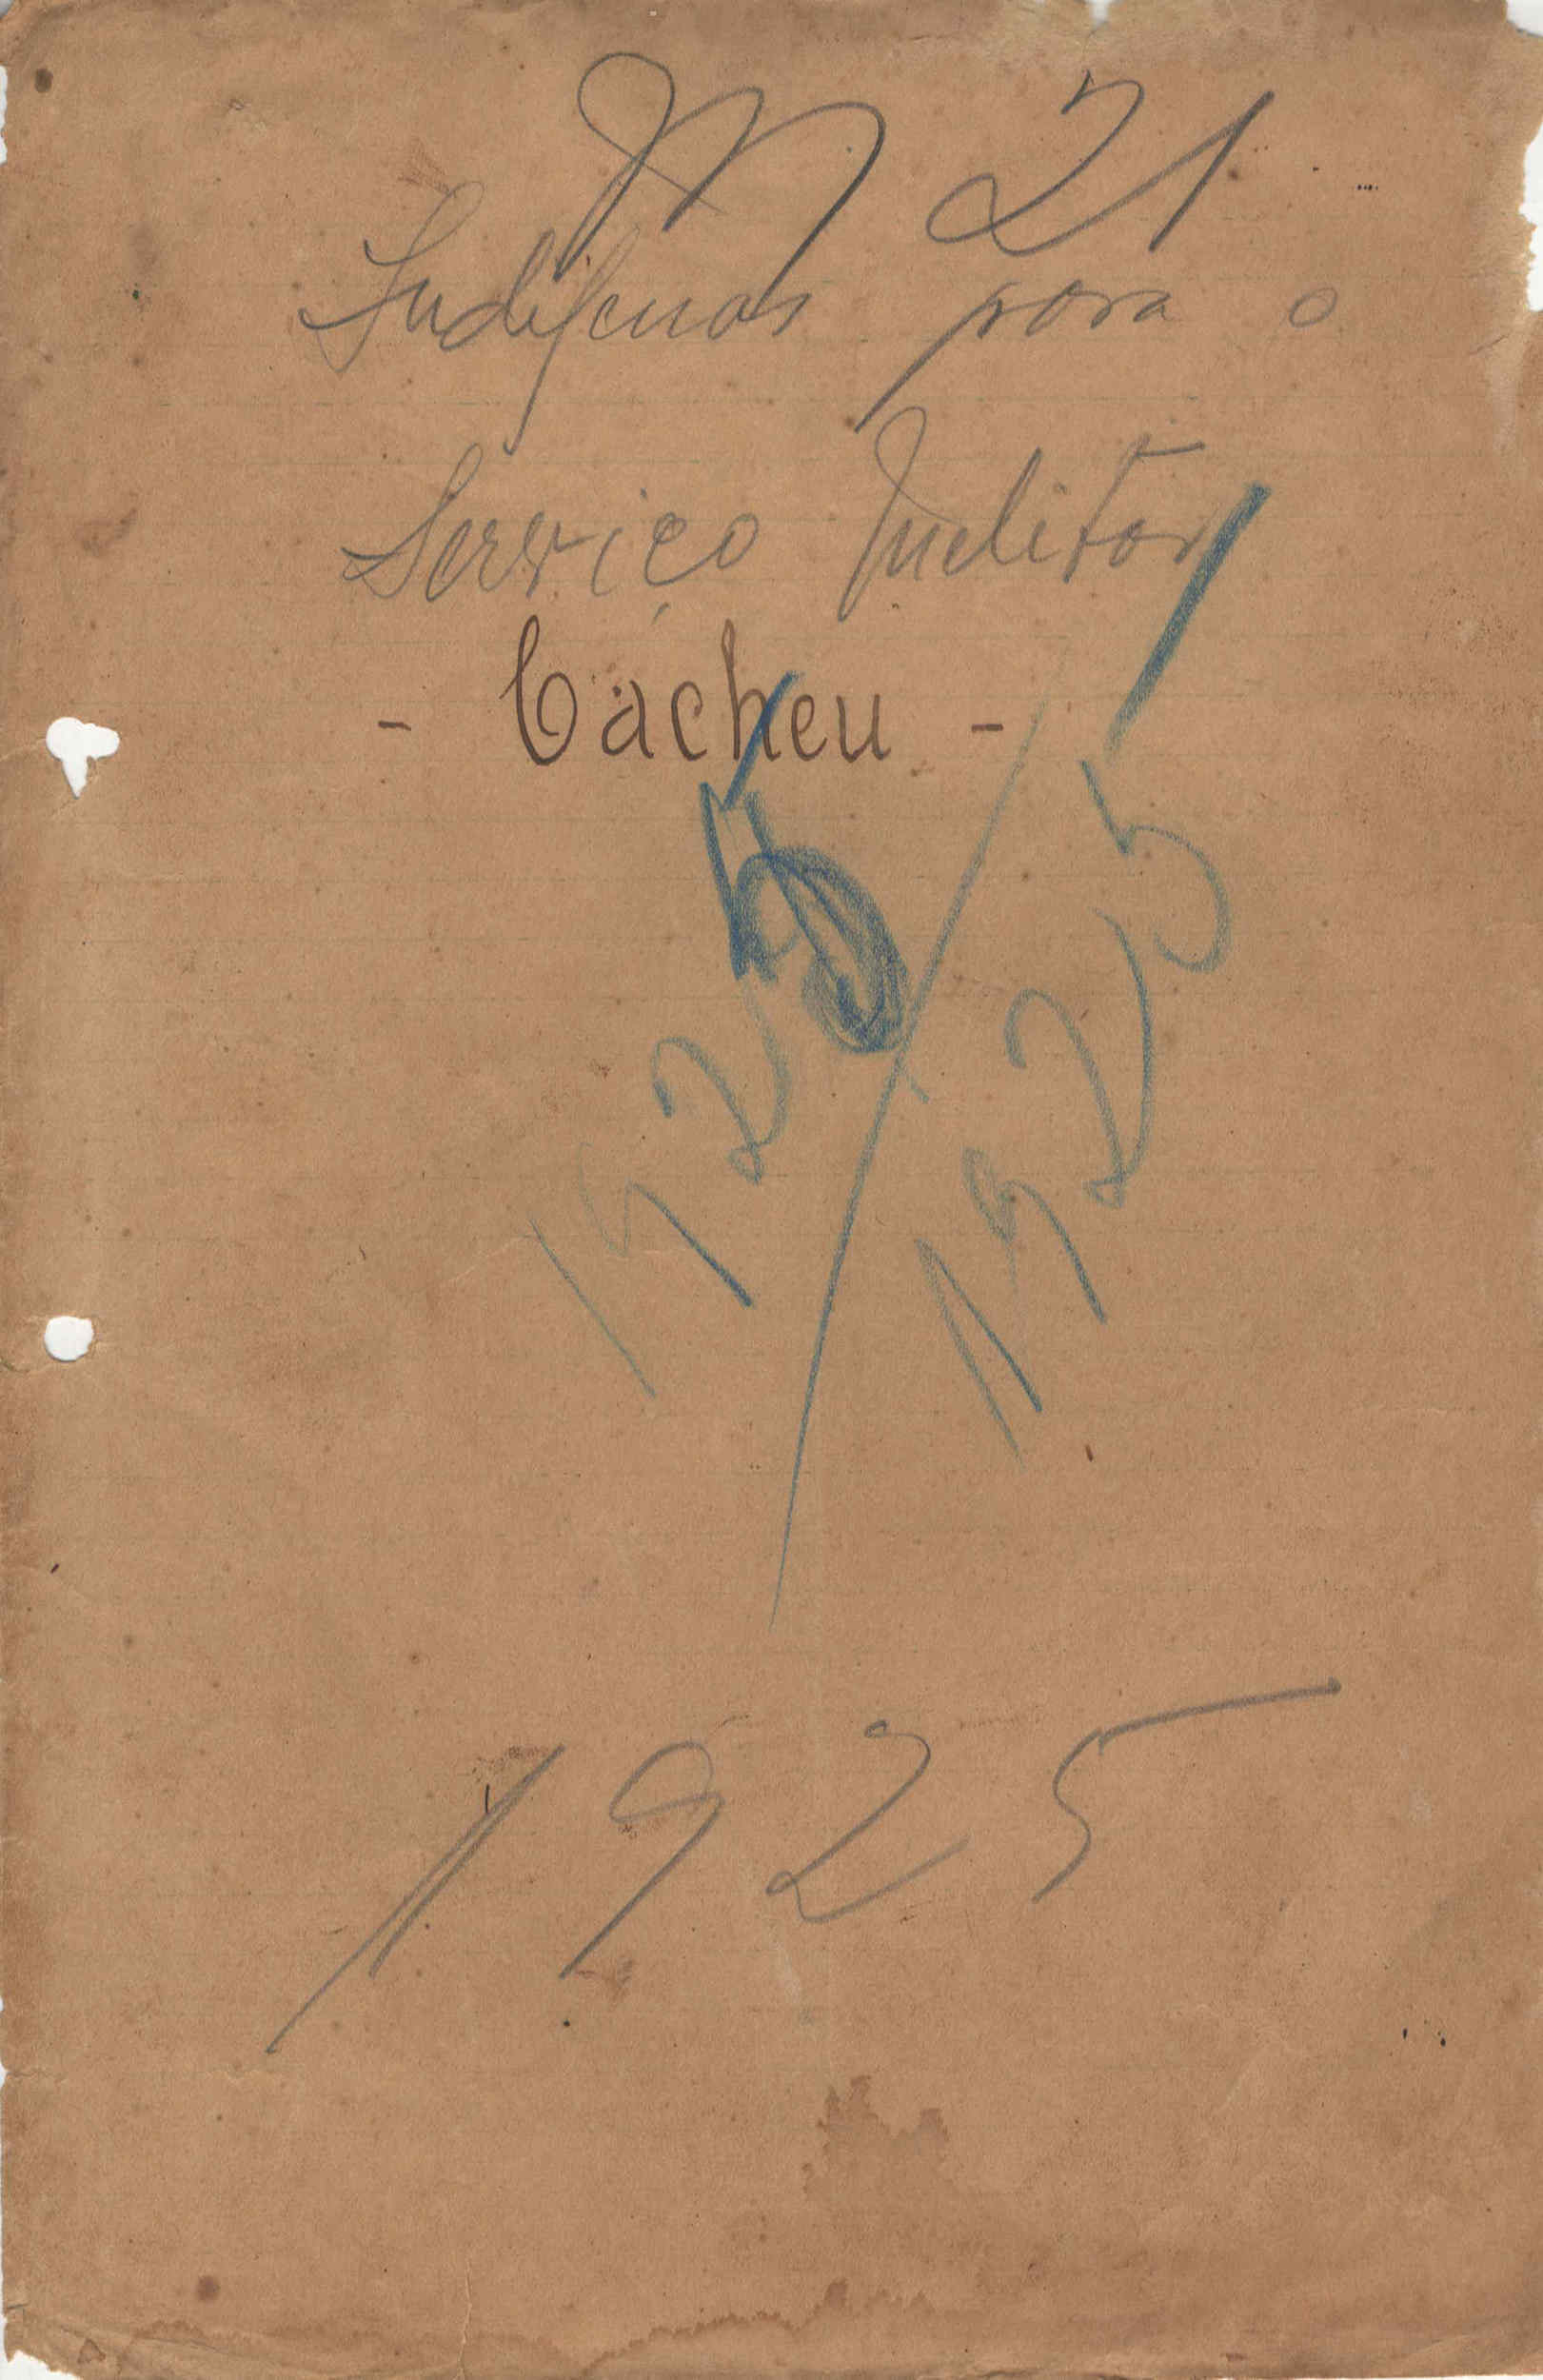 M 21
Indifenas para o
Serviço Militar
- Cacheu -
1925
1925
1925